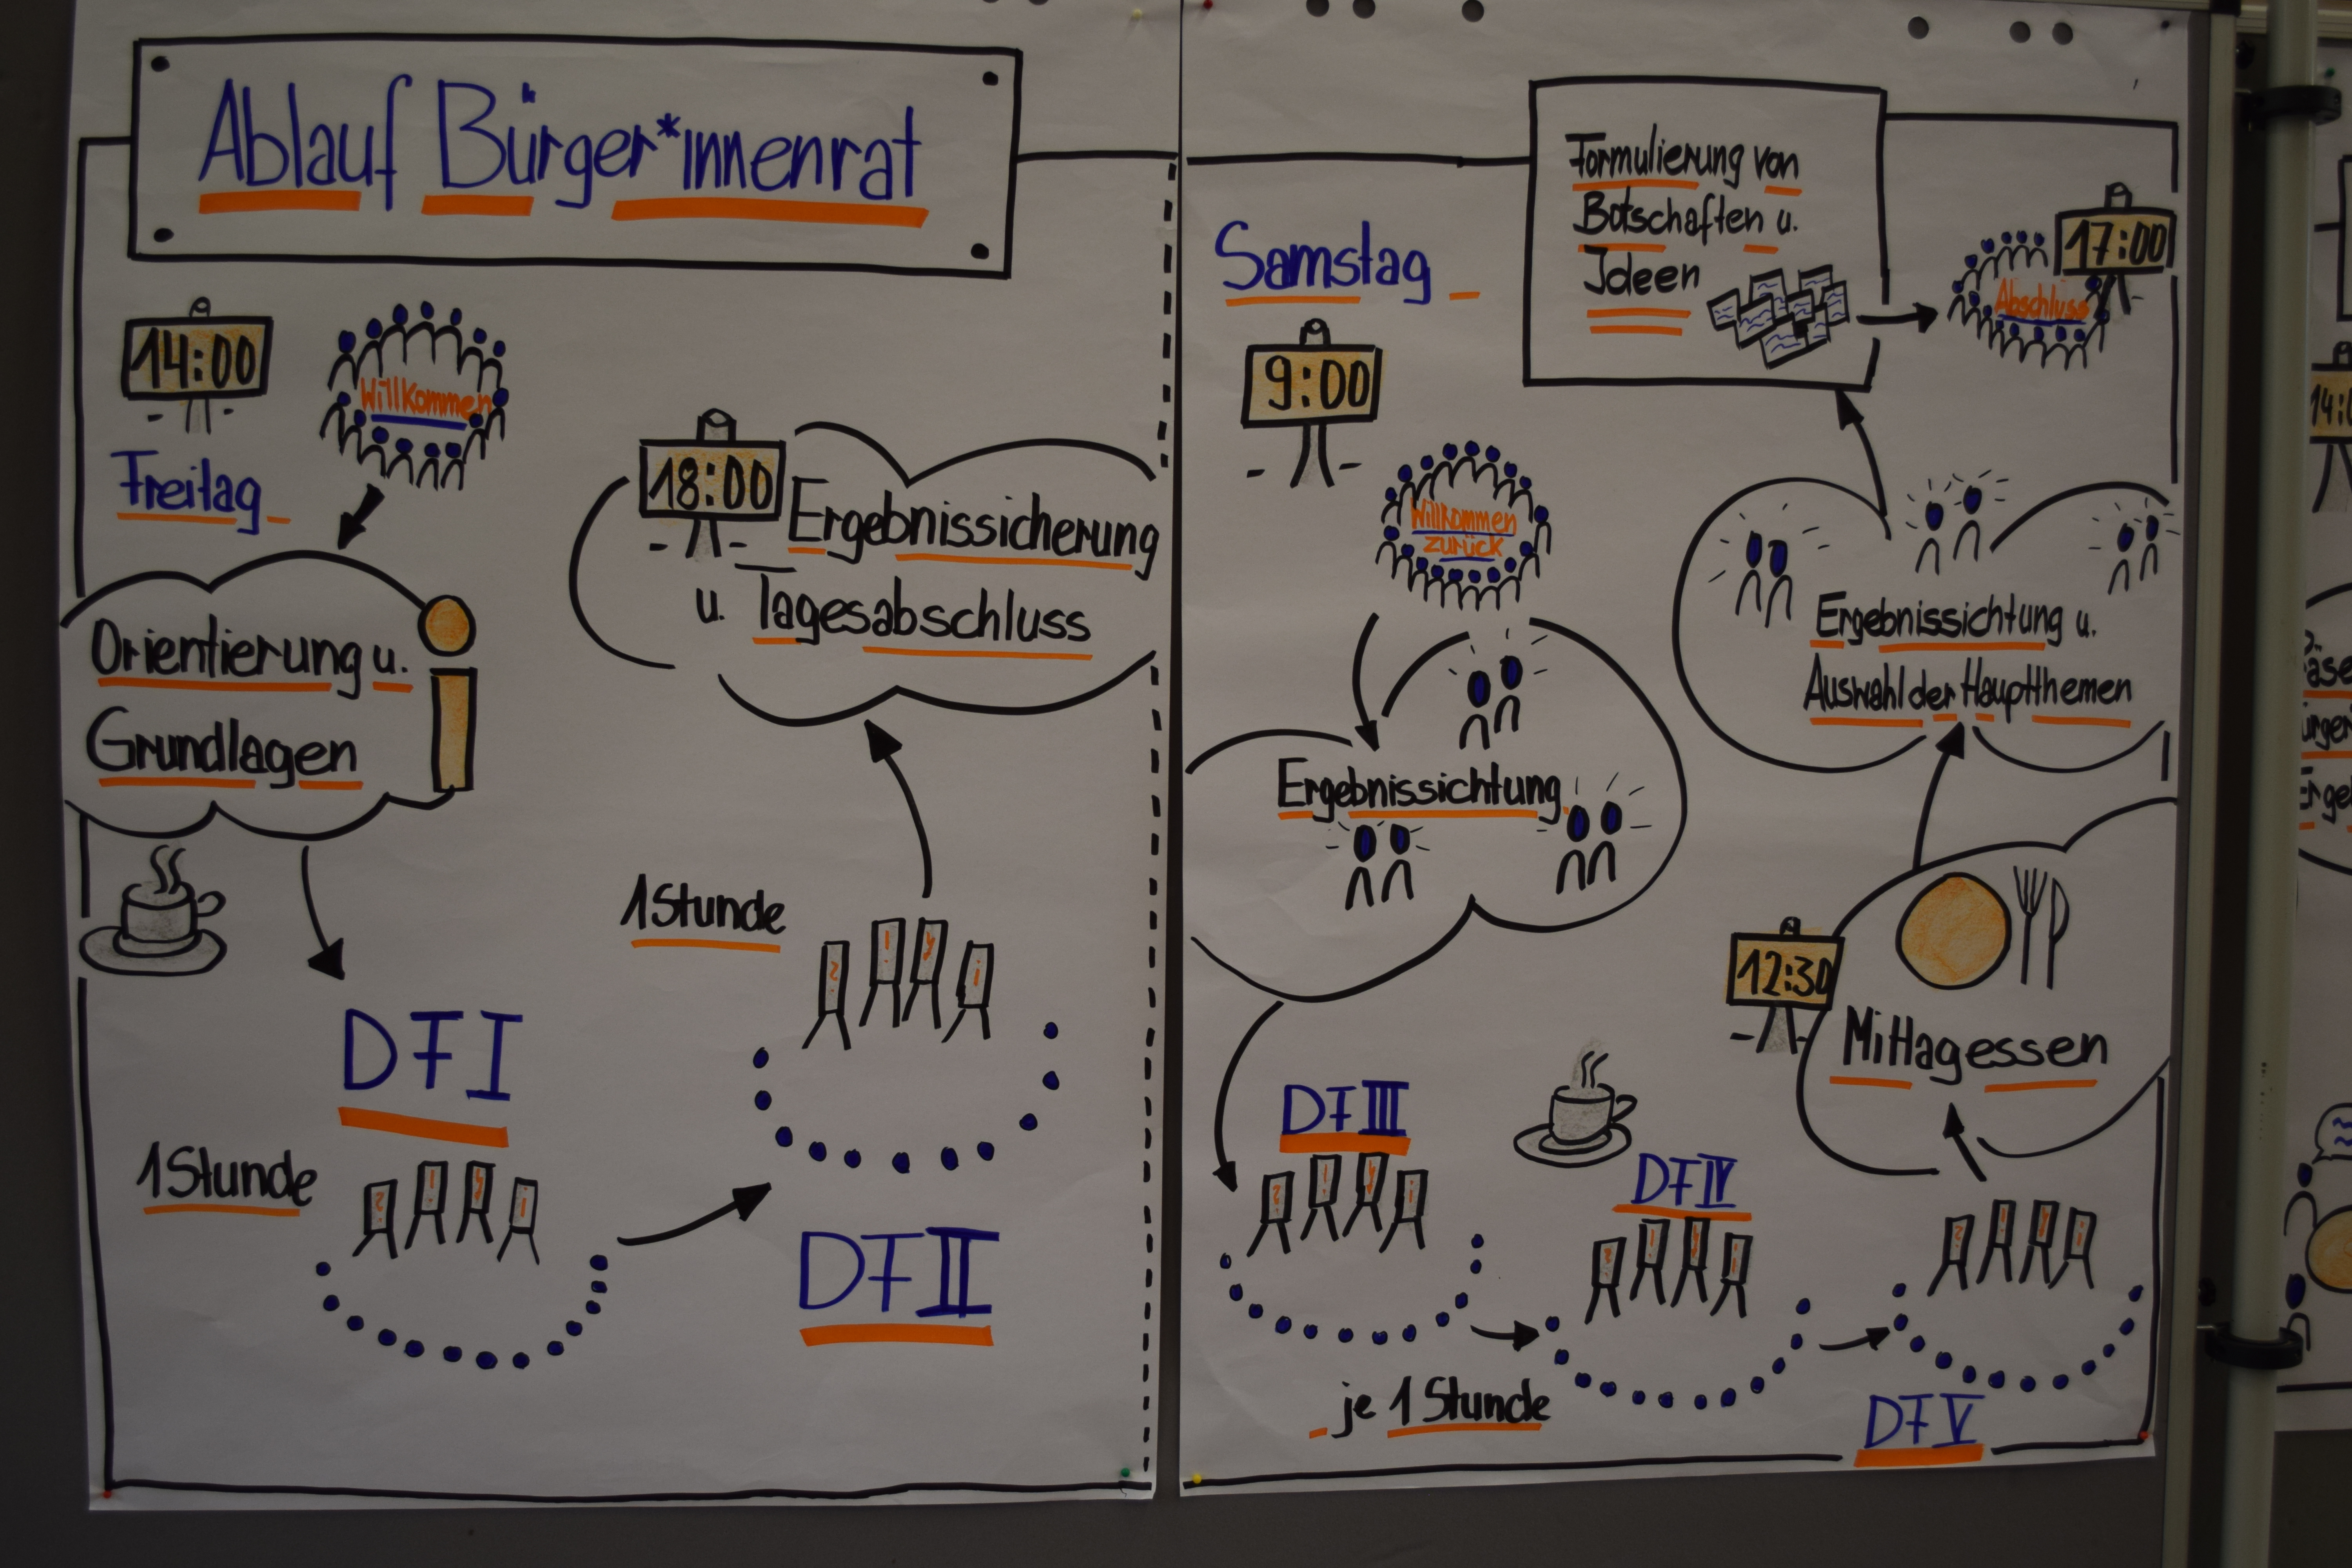 Ablauf Bürger*innenrat
14:00
Willkommen
Freitag
Orientierung u.
Grundlagen
DF I
1 Stunde
DF II
1 Stunde
18:00
Ergebnissicherung
u. Tagesabschluss
Samstag
9:00
Willkommen
zurück
Ergebnissichtung
DF III
DF IV
je 1 Stunde
DF V
12:30
Mittagessen
Ergebnissichtung u.
Auswahl der Hauptthemen
Formulierung von
Botschaften u.
Ideen
17:00
Abschluss